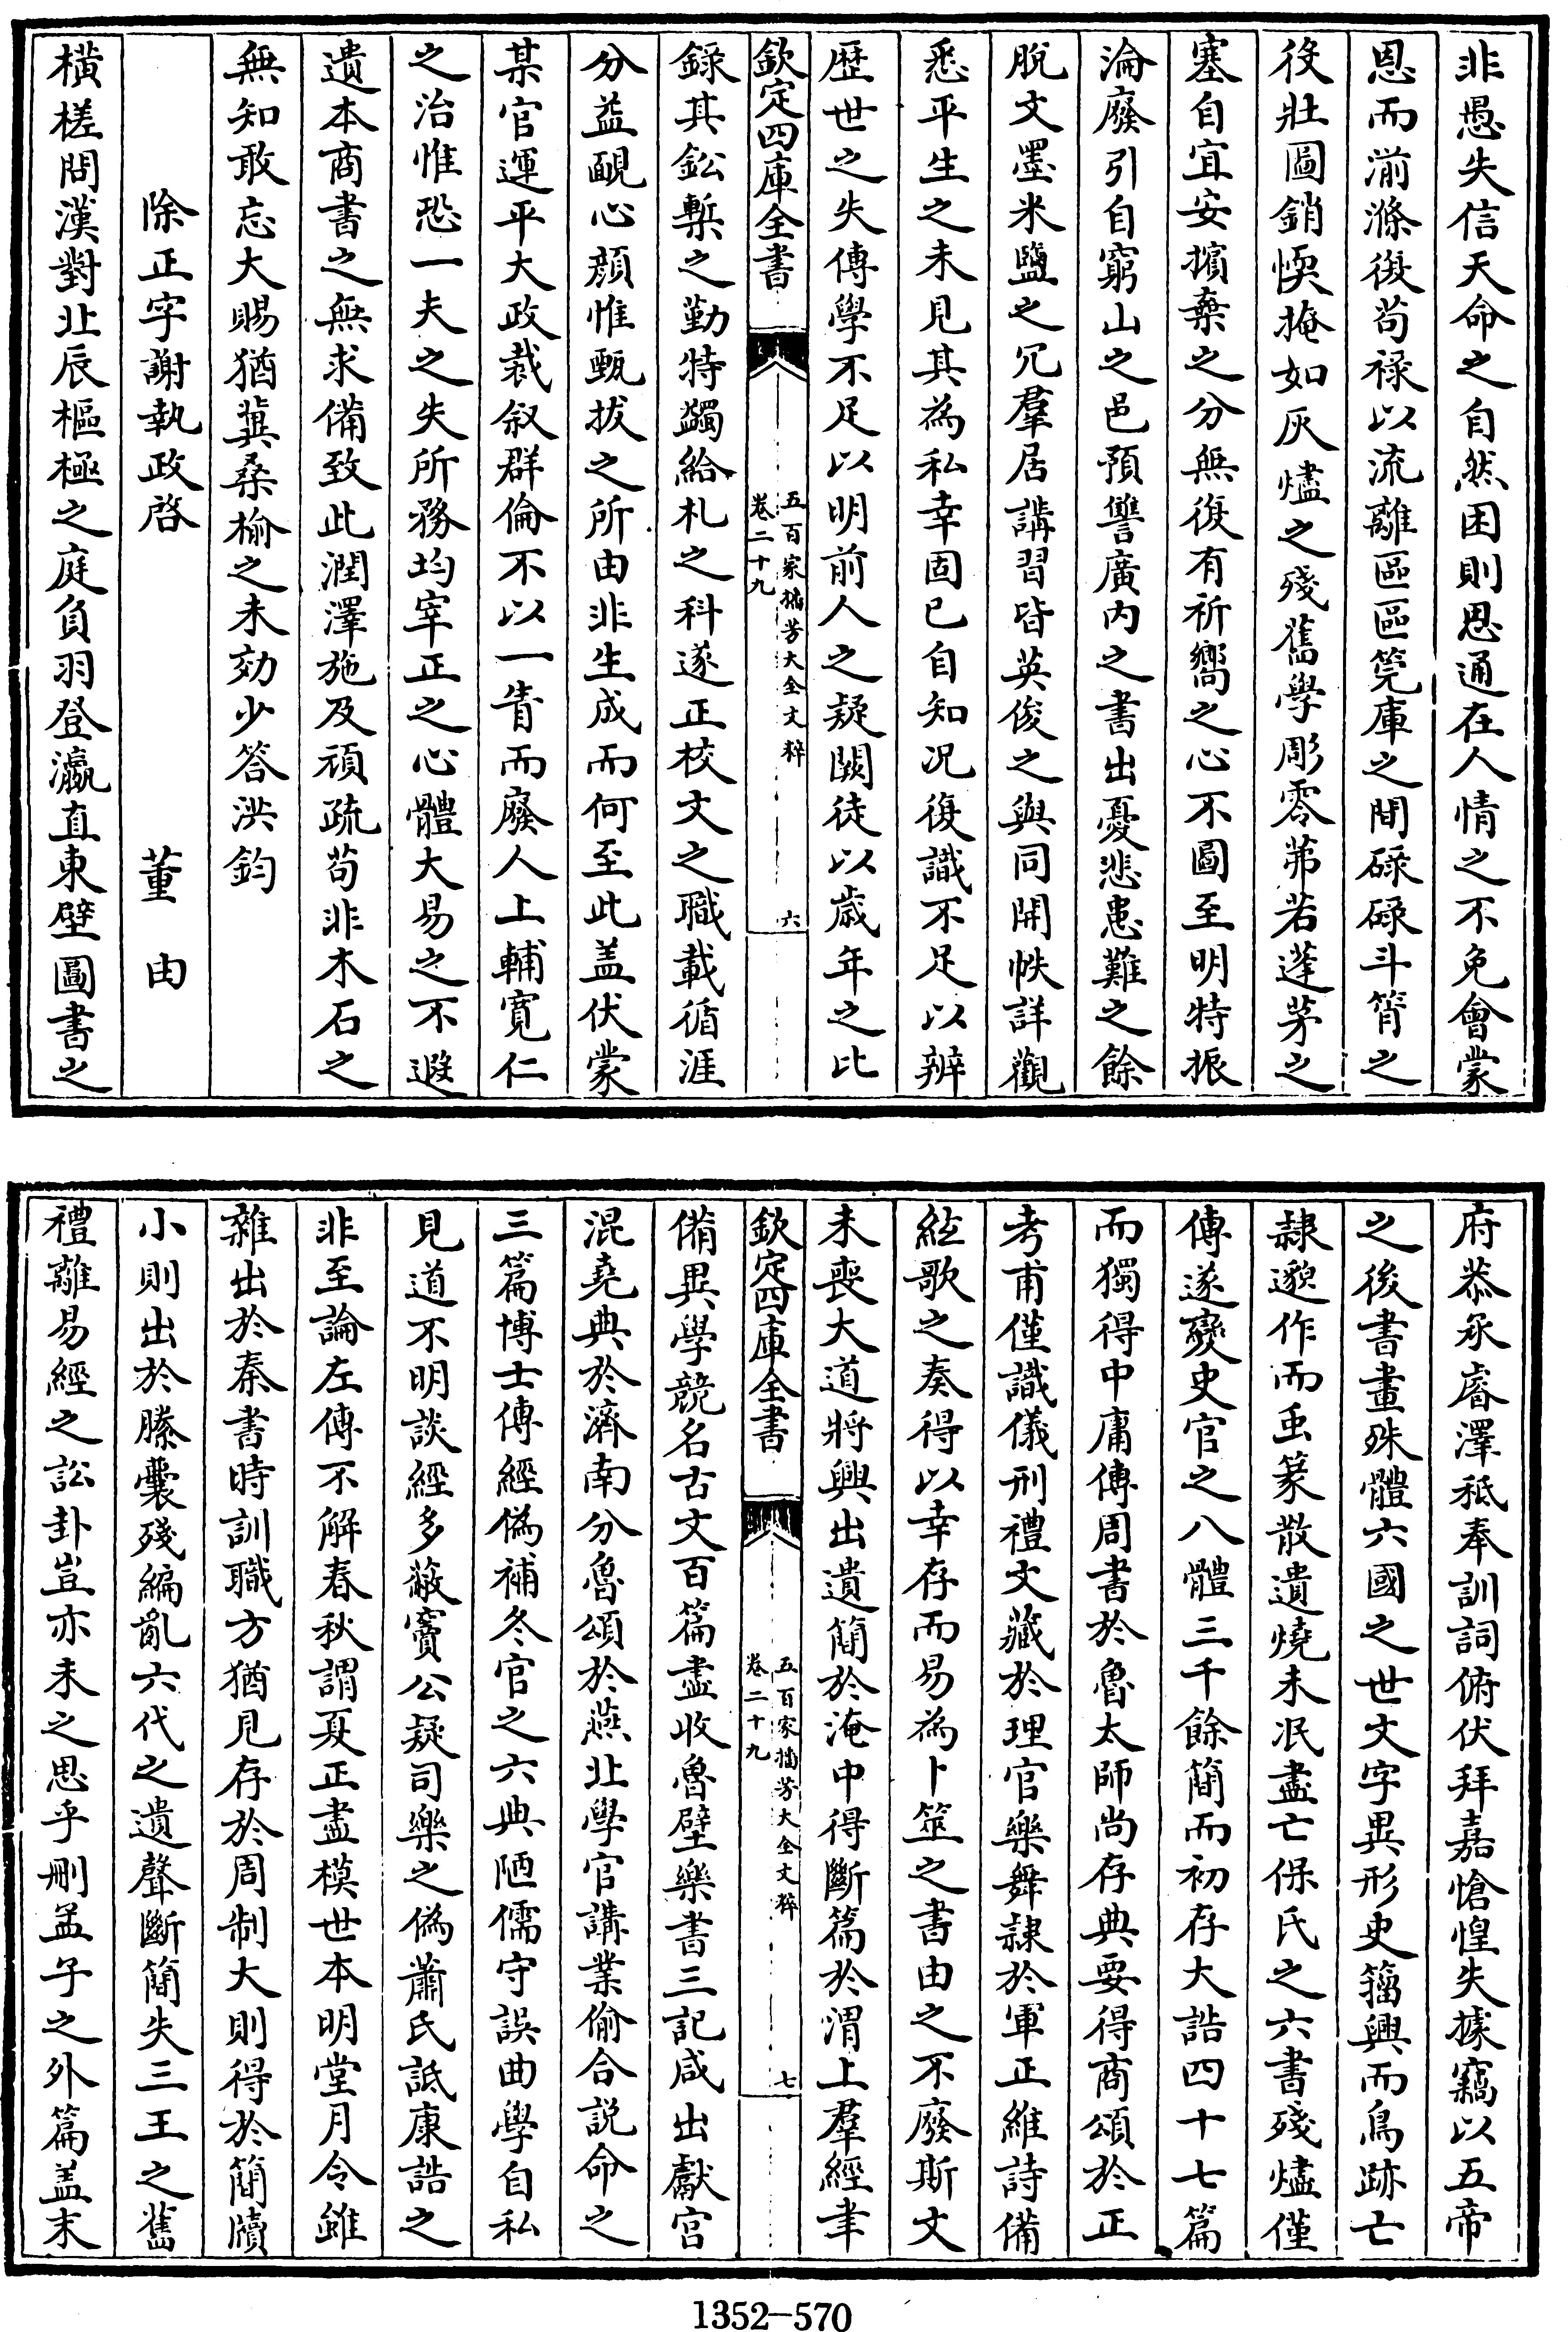 非愚失信天命之自然困則思通在人情之不免會蒙
恩而湔滌復苟禄以流離區區筦庫之間碌碌斗筲之
役壯圖銷愞掩如灰燼之殘舊學彫零茀若蓬茅之
塞自宜安擯棄之分無復有祈嚮之心不圖至明特振
淪廢引自窮山之邑預讐廣内之書出憂悲患難之餘
脱文墨米鹽之冗羣居講習皆英俊之與同開帙詳觀
悉平生之未見其為私幸固已自知况復識不足以辨
歴世之失傳學不足以明前人之疑闕徒以歳年之比
欽定四庫全書
五百家播芳大全文粹
卷二十九
六
録其鉛槧之勤特蠲給札之科遂正校文之職載循涯
分益靦心顔惟甄拔之所由非生成而何至此盖伏蒙
某官運平大政裁叙群倫不以一眚而廢人上輔寛仁
之治惟恐一夫之失所務均宰正之心體大易之不遐
遺本商書之無求備致此潤澤施及頑疏苟非木石之
無知敢忘大賜猶冀桑榆之未効少答洪鈞
除正字謝執政啓
董由
橫槎問漢對北辰樞極之庭負羽登瀛直東壁圖書之
府恭承睿澤祗奉訓詞俯伏拜嘉愴惶失據竊以五帝
之後書畫殊體六國之世文字異形史籀興而鳥跡亡
隷邈作而虫篆散遺燒未泯盡亡保氏之六書殘燼僅
傳遂變史官之八體三千餘簡而初存大誥四十七篇
而獨得中庸傳周書於魯太師尚存典要得商頌於正
考甫僅識儀刑禮文藏於理官樂舞隷於軍正維詩備
絃歌之奏得以幸存而易為卜筮之書由之不廢斯文
未喪大道將興出遺簡於淹中得斷篇於渭上羣經聿
欽定四庫全書
五百家播芳大全文粹
卷二十九
七
備異學競名古文百篇盡收魯壁樂書三記咸出獻宫
混堯典於濟南分魯頌於燕北學官講業偷合説命之
三篇博士傳經偽補冬官之六典陋儒守誤曲學自私
見道不明談經多蔽竇公疑司樂之偽蕭氏詆康誥之
非至論左傳不解春秋謂夏正盡模世本明堂月令雖
雜出於秦書時訓職方猶見存於周制大則得於簡牘
小則出於縢囊殘編亂六代之遺聲斷簡失三王之舊
禮離易經之訟卦豈亦未之思乎刪孟子之外篇盖末
1352-570